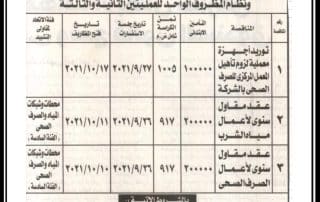 ونظام المظروف الواحد للعمليتين الثانية والثالثة
رقم المناقصة
المناقصة
التأمين الابتدائى
ثمن الكراسة شامل ض.ق
تاريخ جلسة الاستفسارات
تاريخ فتح المظاريف
فئة الاتحاد لمقاولى التشييد
١
توريد أجهزة
معملية لزوم تأهيل
المعمل المركزى للصرف
الصحى بالشركة
١٠٠٠٠٠
١٠٠٥
٢٠٢١/٩/٢٧
٢٠٢١/١٠/١٧
٢
عقد مقاول
سنوى لأعمال
مياه الشرب
٢٠٠٠٠٠
٩١٧
٢٠٢١/٩/٢٦
٢٠٢١/١٠/١١
محطات وشبكات
المياه والصرف
الصحى
(الفئة السادسة)
٣
عقد مقاول
سنوى لأعمال
الصرف الصحى
٢٠٠٠٠٠
٩١٧
٢٠٢١/٩/٢٦
٢٠٢١/١٠/١٠
محطات وشبكات
المياه والصرف
الصحى
(الفئة السادسة)